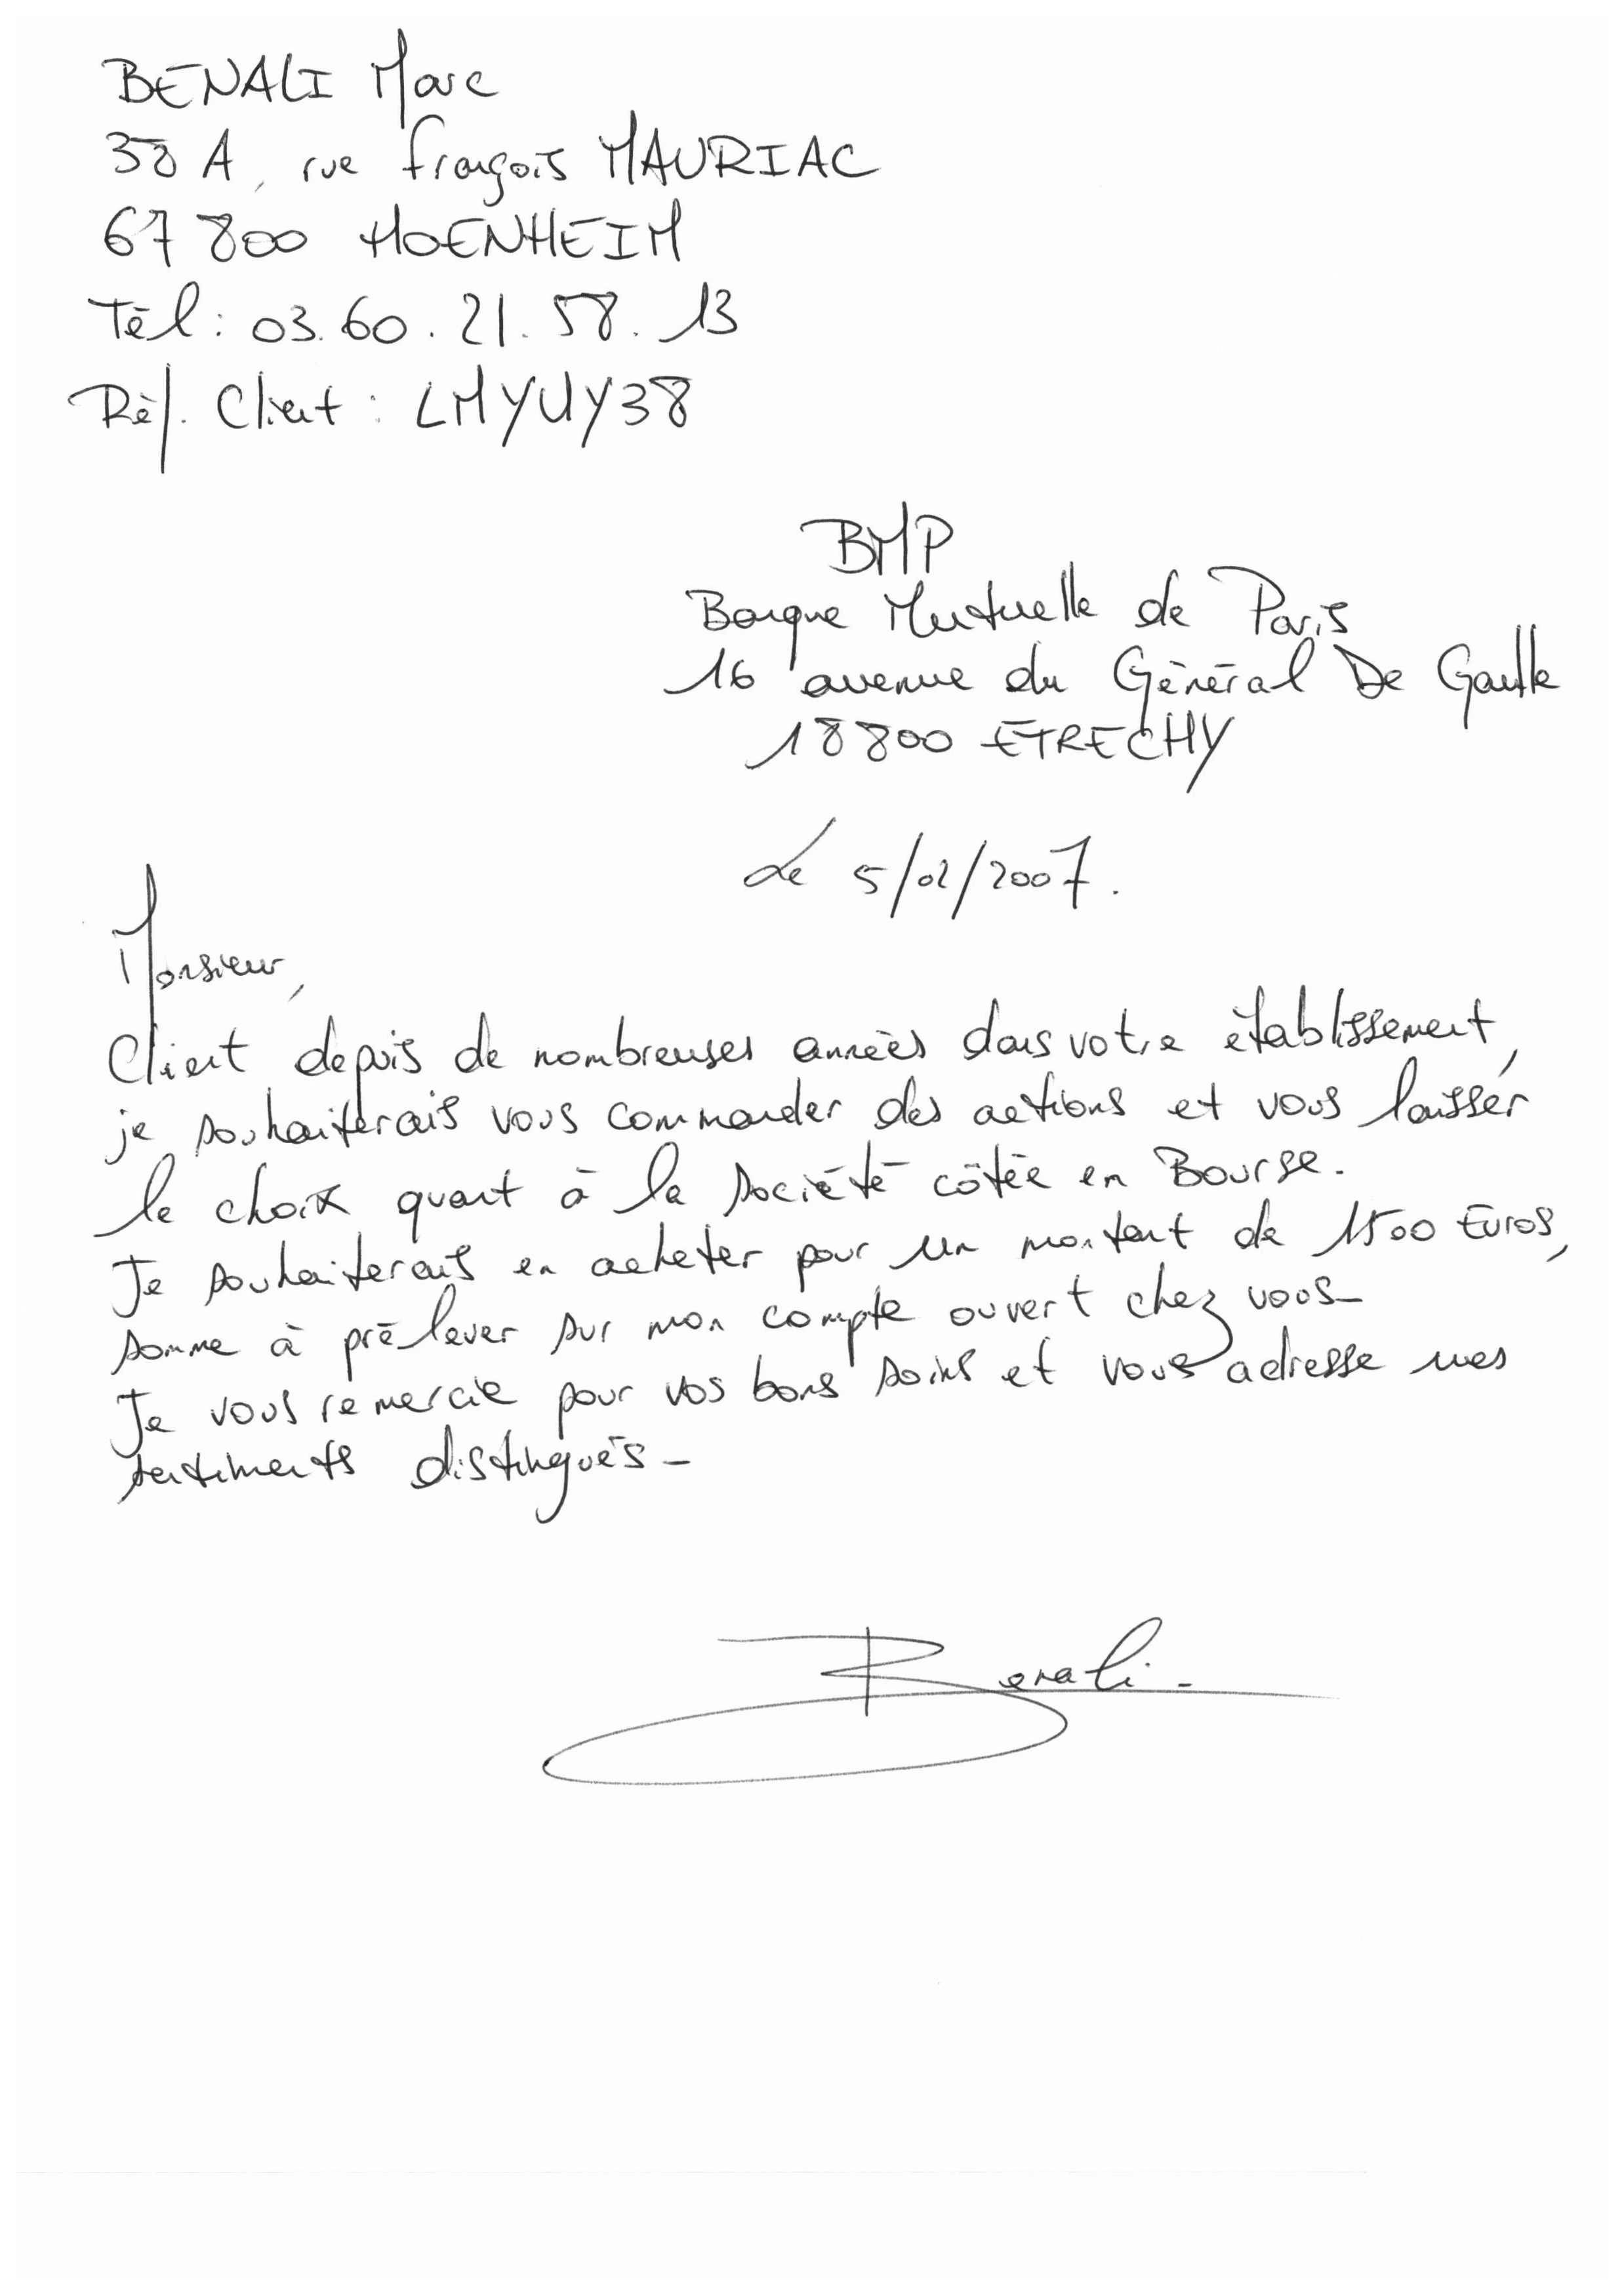 BENALI Marc
38 A, rue François MAURIAC
67800 HOENHEIM
Tél: 03.60.21.58.13
Réf. Client: LMYUY38
BMP
Banque Mutuelle de Paris
16 avenue du Général De Gaulle
18800 ETRECHY
Le 5/02/2007.
Monsieur,
Client depuis de nombreuses années dans votre établissement,
je souhaiterais vous commander des actions et vous laisser
le choix quant à la société côtée en Bourse.
Je souhaiterais en acheter pour un montant de 1500 Euros,
somme à prélever sur mon compte ouvert chez vous_
Je vous remercie pour vos bons soins et vous adresse mes
sentiments distingués_
Benali-